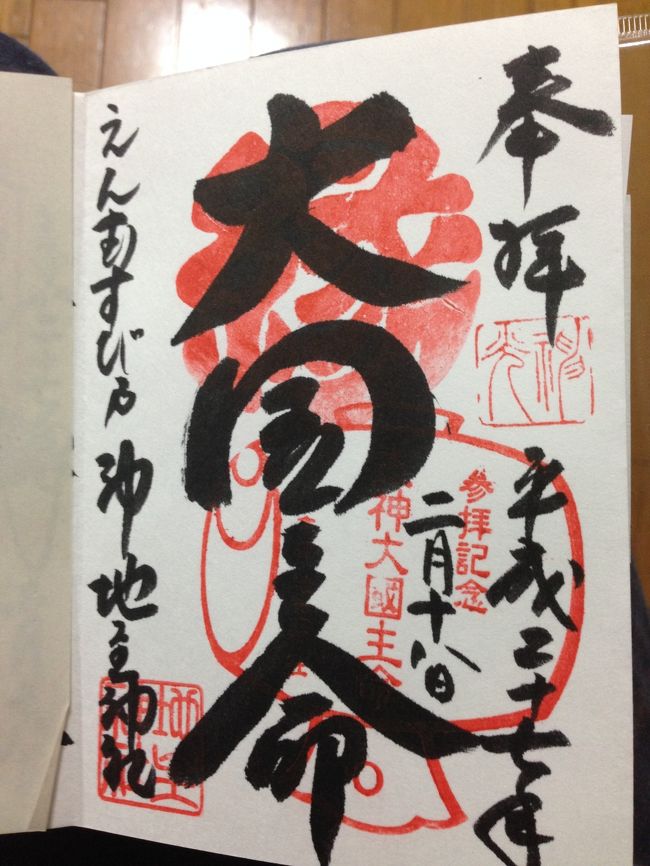 奉拝
平成二十七年
参拝記念
二月十八日
神大國主命
大国主命
えんむすび乃神 地主神社